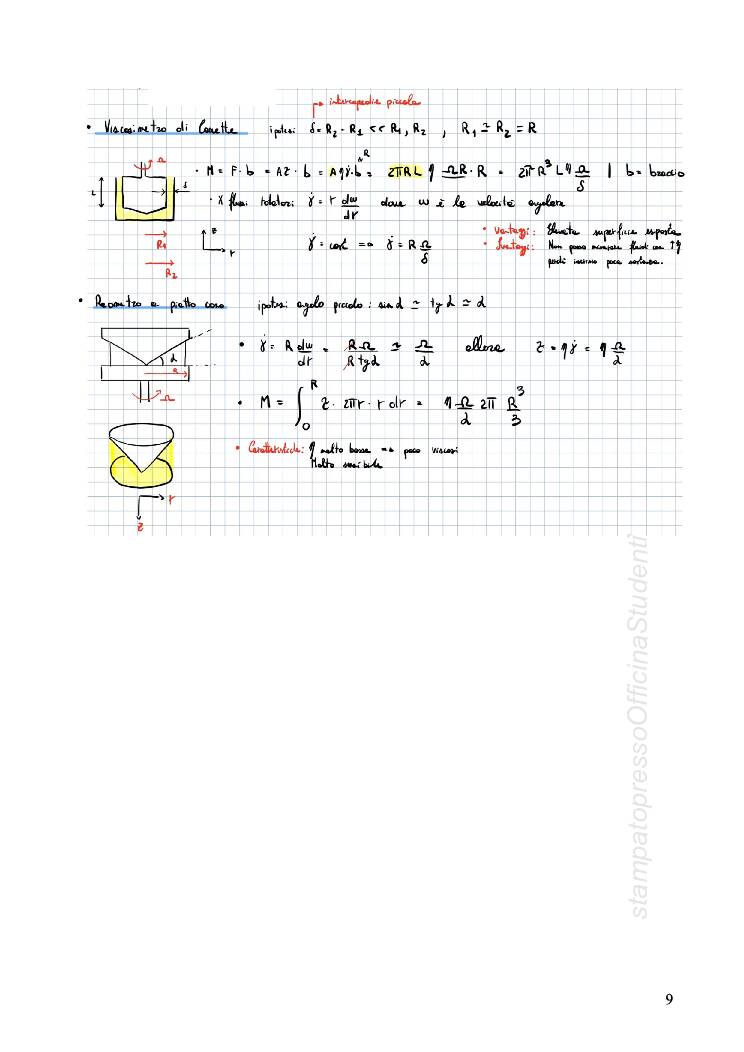 intercapedine piccola
• Viscosimetro di Couette ipotesi δ = R₂ - R₁ << R₁, R₂ , R₁ ≃ R₂ = R
• M = F · b = Aτ · b = Aηγ̇ · b = 2πRL η ΩR · R = 2πR³Lη Ω/δ | b = braccio
R
Ω
L
δ
• X flussi rotatori γ̇ = r dω/dr dove ω è la velocità angolare
R₁
R₂
z
r
γ̇ = cost => γ̇ = R Ω/δ
• Vantaggi: Elevata superficie esposta
• Svantaggi: Non posso misurare fluidi con ↑η
perché
• Reometro a piatto cono ipotesi angolo piccolo : sin α ≃ tg α ≃ α
α
R
Ω
• γ̇ = R dω/dr = RΩ/R tg α ≃ Ω/α allora τ = ηγ̇ = η Ω/α
• M = ∫₀ᴿ τ · 2πr · r dr = η Ω/α 2π R³/3
• Caratteristiche: η molto basse => poco viscosi
Molto sensibile
r
z
stampatopressoOfficinaStudenti
9